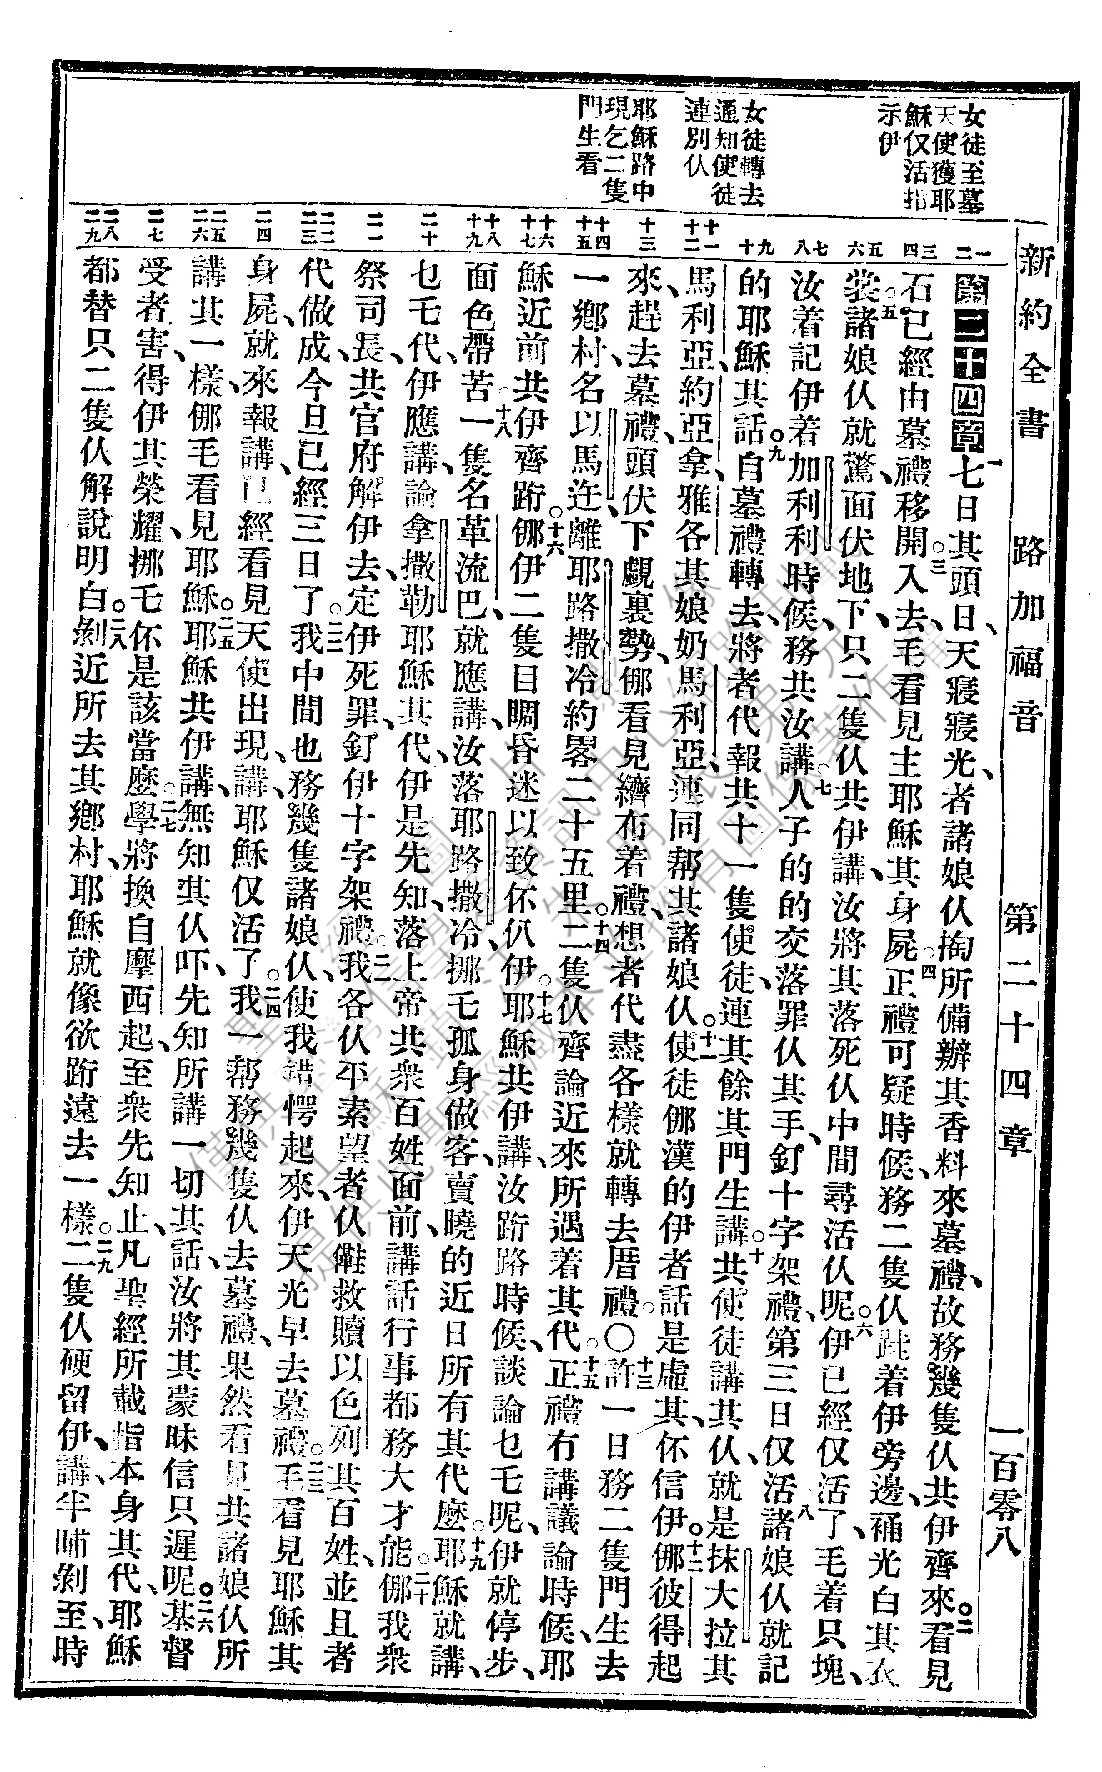 新約全書　路加福音　第二十四章　一百零八
女徒至墓
天使獲耶
穌仅活指
示伊
女徒轉去
通知使徒
連別仈
耶穌路中
現乞二隻
門生看
第二十四章一七日其頭日、天寢寢光、者諸娘仈掏所備辦其香料來墓禮、故務幾隻仈共伊齊來。二看見
石已經由墓禮移開。三入去、毛看見主耶穌其身屍。四正禮可疑時候、務二隻仈跬着伊旁邊、補光白其衣
裳。五諸娘仈就驚、面伏地下、只二隻仈共伊講、汝將其落死仈中間尋活仈呢。六伊已經仅活了、毛着只塊、
汝着記伊着加利利時候、務共汝講、七人子的的交落罪仈其手、釘十字架禮、第三日仅活。八諸娘仈就記
的耶穌其話。九自墓禮轉去、將者代報共十一隻使徒、連其餘其門生講。十共使徒講其仈、就是抹大拉其
馬利亞、約亞拿、雅各其娘奶馬利亞、連同幫其諸娘仈。十一使徒㑚漢的伊者話是虛其、伓信伊。十二㑚彼得起
來、趕去墓禮、頭伏下覷裏勢、㑚看見纃布着禮、想者代盡各樣、就轉去厝禮。〇十三許一日務二隻門生、去
一鄉村、名以馬迕、離耶路撒冷約畧二十五里。十四二隻仈齊論近來所遇着其代。十五正禮冇講議論時候、耶
穌近前共伊齊跲。十六㑚伊二隻目睭昏迷、以致伓仈伊。十七耶穌共伊講、汝跲路時候、談論乜乇呢、伊就停步、
面色帶苦。十八一隻名革流巴、就應講、汝落耶路撒冷、挪乇孤身做客、賣曉的近日所有其代麽。十九耶穌就講、
乜乇代、伊應講、論拿撒勒耶穌其代、伊是先知、落上帝共衆百姓面前、講話行事都務大才能。二十㑚我衆
祭司長、共官府解伊去、定伊死罪、釘伊十字架禮。二一我各仈平素望者仈能救贖以色列其百姓、並且者
代做成、今旦已經三日了。二二我中間也務幾隻諸娘仈、使我錯愕起來、伊天光早去墓禮。二三毛看見耶穌其
身屍、就來報講、已經看見天使出現、講、耶穌仅活了。二四我一幫務幾隻仈去墓禮、果然看見共諸娘仈所
講其一樣、㑚毛看見耶穌。二五耶穌共伊講、無知其仈吓、先知所講一切其話、汝將其蒙昧信只遲呢。二六基督
受者害、得伊其榮耀、挪乇伓是該當麽。二七學將換自摩西起、至衆先知止、凡聖經所載指本身其代、耶穌
都替只二隻仈解說明白。二八剝近所去其鄉村、耶穌就像欲跲遠去一樣。二九二隻仈硬留伊、講、半晡剝至、時